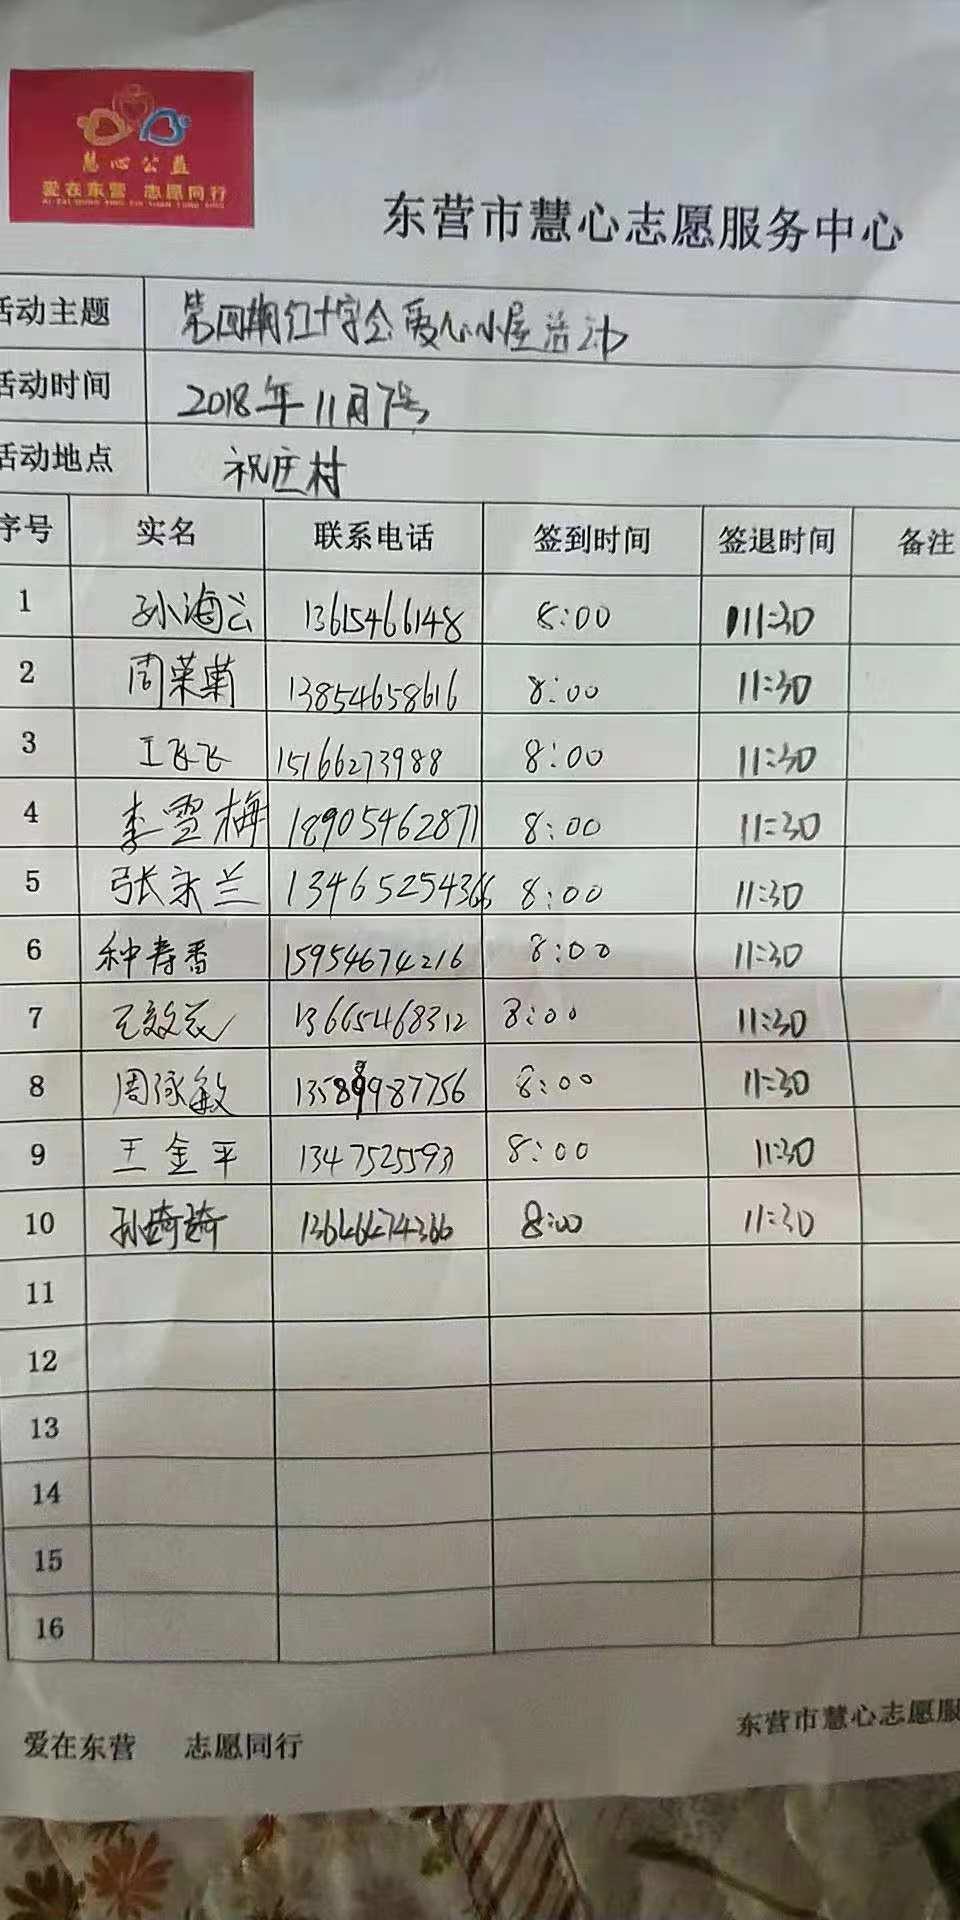 慧心公益
爱在东营 志愿同行
东营市慧心志愿服务中心
活动主题 第四期红十字会爱心小屋活动
活动时间 2018年11月7号
活动地点 祝庄村
序号 实名 联系电话 签到时间 签退时间 备注
1 孙海云 13615466148 8:00 11:30
2 周荣菊 13854658616 8:00 11:30
3 王飞飞 15166273988 8:00 11:30
4 李雪梅 18905462871 8:00 11:30
5 张永兰 13465254366 8:00 11:30
6 种寿香 15954674216 8:00 11:30
7 13665468312 8:00 11:30
8 周咏敏 13589987756 8:00 11:30
9 王金平 13475255931 8:00 11:30
10 孙绮绮 13646474366 8:00 11:30
11
12
13
14
15
16
爱在东营 志愿同行
东营市慧心志愿服